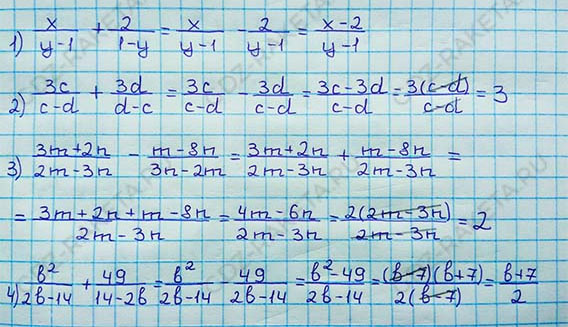 1) x/(y-1) + 2/(1-y) = x/(y-1) - 2/(y-1) = (x-2)/(y-1)
2) 3c/(c-d) + 3d/(d-c) = 3c/(c-d) - 3d/(c-d) = (3c-3d)/(c-d) = 3(c-d)/(c-d) = 3
3) (3m+2n)/(2m-3n) - (m-8n)/(3n-2m) = (3m+2n)/(2m-3n) + (m-8n)/(2m-3n) =
= (3m+2n+m-8n)/(2m-3n) = (4m-6n)/(2m-3n) = 2(2m-3n)/(2m-3n) = 2
4) b²/(2b-14) + 49/(14-2b) = b²/(2b-14) - 49/(2b-14) = (b²-49)/(2b-14) = (b-7)(b+7)/2(b-7) = (b+7)/2